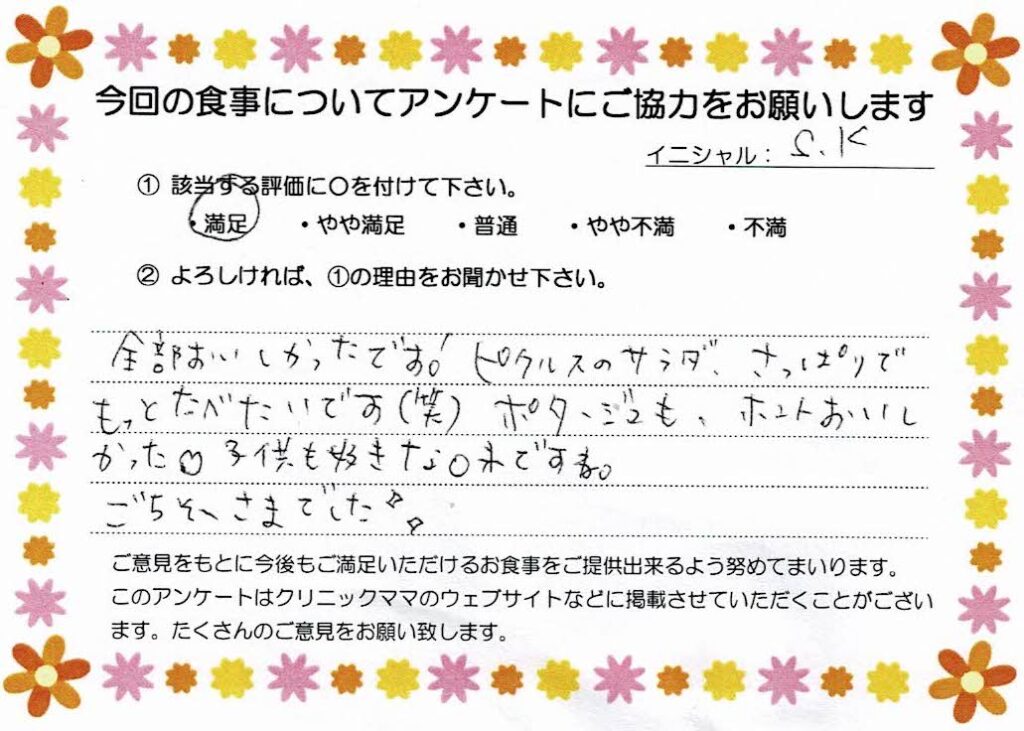 今回の食事についてアンケートにご協力をお願いします
イニシャル： S.K
① 該当する評価に〇を付けて下さい。
・満足 ・やや満足 ・普通 ・やや不満 ・不満
② よろしければ、①の理由をお聞かせ下さい。
全部おいしかったです! ピクルスのサラダ、さっぱりで
もっとたべたいです(笑) ポタージュも、ホントおいし
かった♡ 子供も好きな味ですね。
ごちそうさまでした
ご意見をもとに今後もご満足いただけるお食事をご提供出来るよう努めてまいります。
このアンケートはクリニックママのウェブサイトなどに掲載させていただくことがござい
ます。たくさんのご意見をお願い致します。